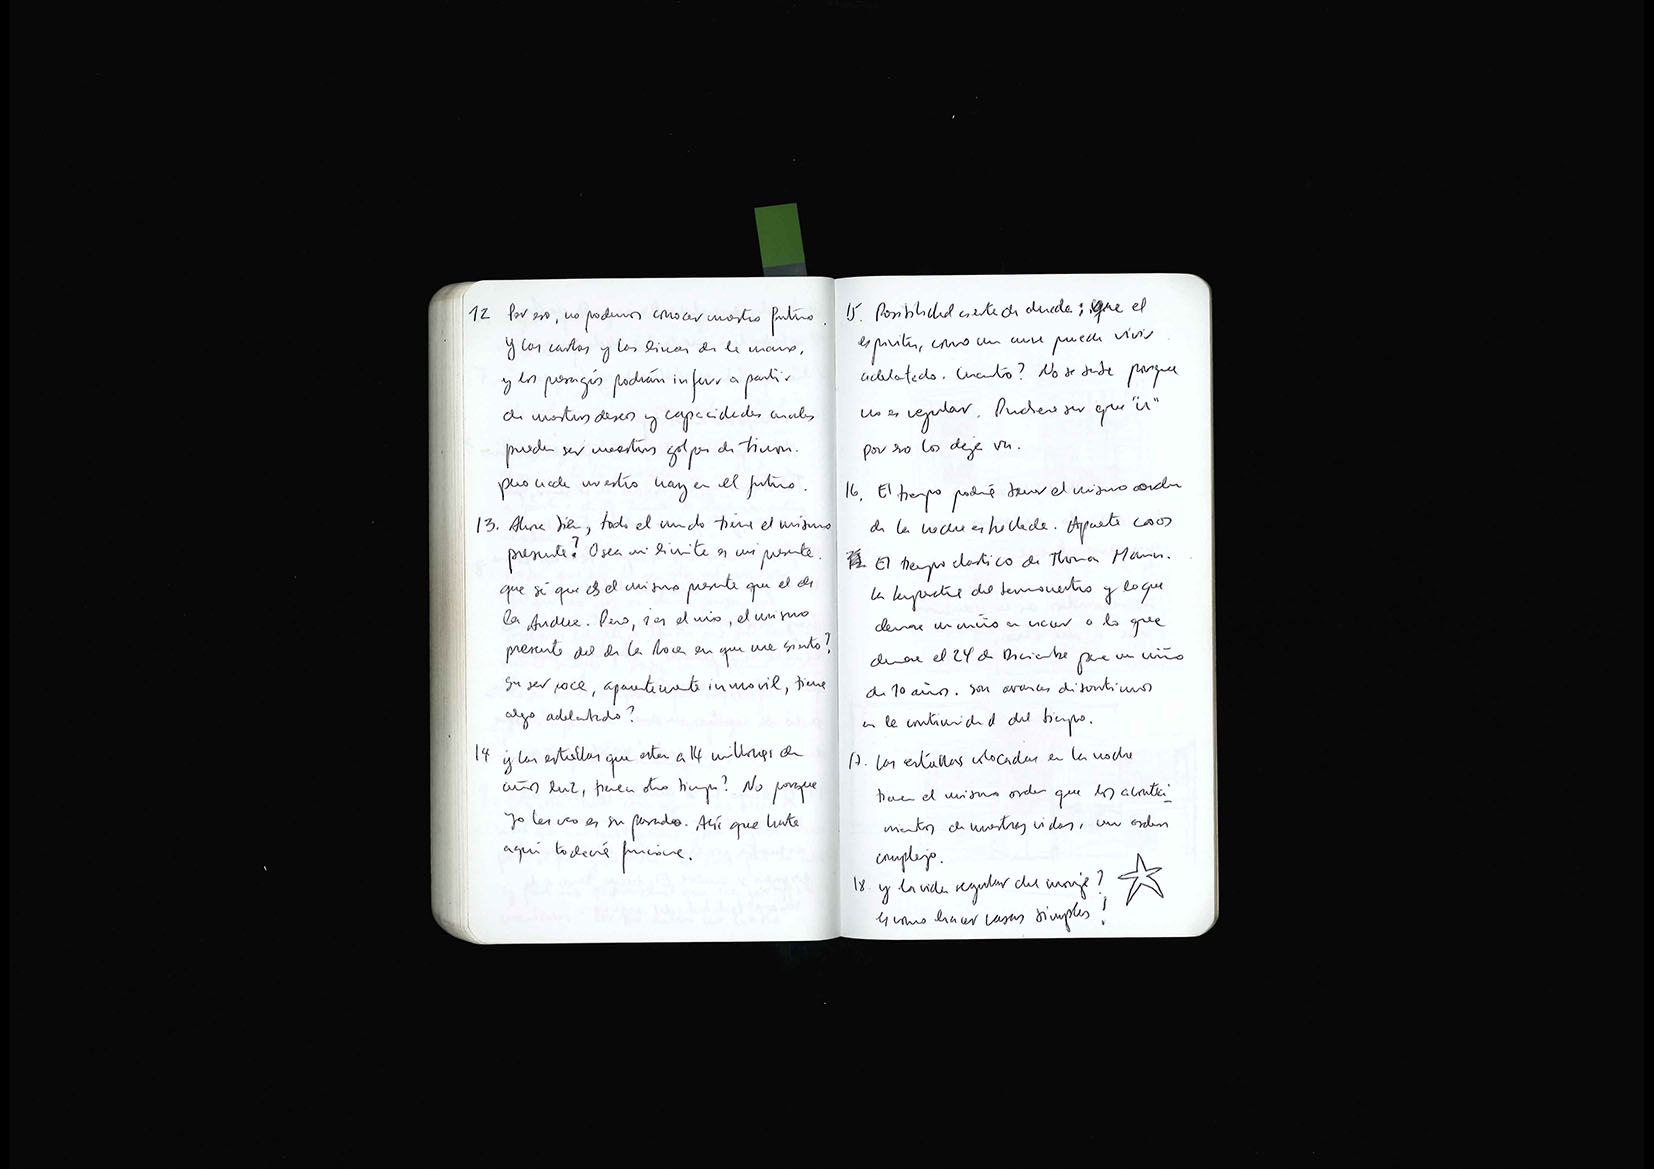 12 Por eso, no podemos conocer nuestro futuro.
y las cartas y las lineas de la mano,
y los presagios podrán inferir a partir
de nuestros deseos y capacidades cuales
pueden ser nuestros golpes de timon.
pero nada nuestro hay en el futuro.
13. Ahora bien, todo el mundo tiene el mismo
presente? O sea mi limite es mi presente.
que sé que es el mismo presente que el de
la Andrea. Pero, ¿es el mio, el mismo
presente del de la Roca en que me siento?
su ser roca, aparentemente inmovil, tiene
algo adelantado?
14 y las estrellas que estan a 14 millones de
años luz, tienen otro tiempo? No porque
yo las veo es su pasado. Asi que hasta
aqui todavía funciona.
15. Posibilidad cierta de duda: que el
espiritu, como un puede vivir
adelantado. Cuanto? No se sabe porque
no es regular. Pudiera ser que
por eso los deja ver.
16. El tiempo podría tener el mismo orden
de la noche estrellada. Aparte casos
El tiempo elastico de Thomas Mann.
La del y lo que
demora un niño en nacer o lo que
demora el 24 de Diciembre para un niño
de 10 años. son avances discontinuos
en la continuidad del tiempo.
17. Las estrellas colocadas en la noche
tienen el mismo orden que los acontec-
mientos de nuestras vidas, un orden
complejo.
18. y la vida regular del monje?
Es como hacer casas simples!